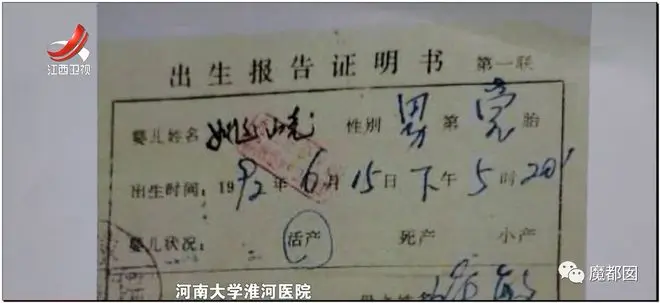 江西卫视
出生报告证明书 第一联
婴儿姓名 姚 性别 男 第 胎
出生时间：1992年6月15日下午5时20'
婴儿状况： 活产 死产 小产
河南大学淮河医院
魔都囡